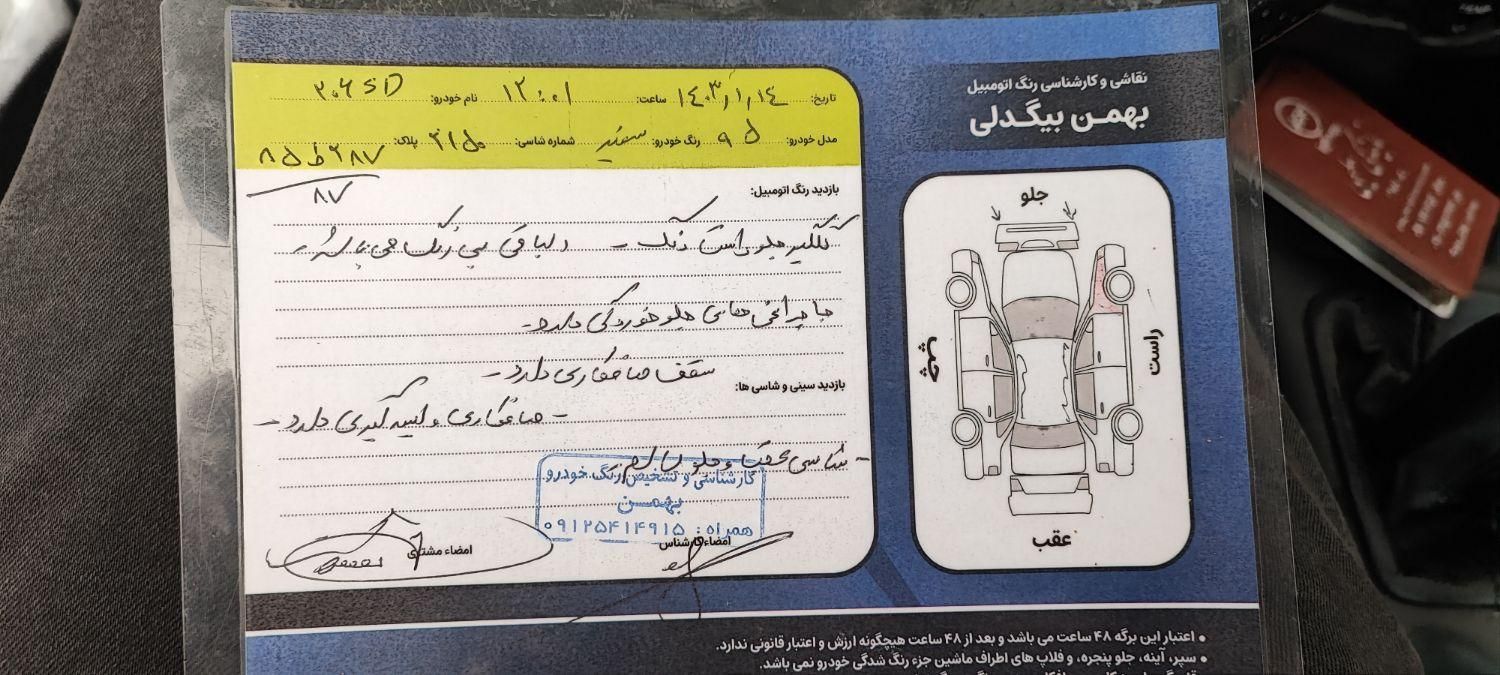 نقاشی و کارشناسی رنگ اتومبیل
بهمن بیگدلی
تاریخ: ۱۴۰۳/۱/۱۴ ساعت: ۱۲:۰۱ نام خودرو: ۲۰۶ SD
مدل خودرو: ۹۵ رنگ خودرو: سفید شماره شاسی: ۳۱۵۰ پلاک: ۸۵ ط ۲۸۷
۸۷
بازدید رنگ اتومبیل:
گلگیر جلو راست رنگ - و مابقی بی رنگ می باشد -
جا چراغی های جلو خوردگی دارد -
سقف صافکاری دارد -
بازدید سینی و شاسی ها:
- صافکاری و لیسه گیری دارد -
- شاسی عقب و جلو سالم
کارشناسی و تشخیص رنگ خودرو
بهمن
همراه: ۰۹۱۲۵۴۱۴۹۱۵
امضاء کارشناس
امضاء مشتری
جلو
چپ
راست
عقب
• اعتبار این برگه ۴۸ ساعت می باشد و بعد از ۴۸ ساعت هیچگونه ارزش و اعتبار قانونی ندارد.
• سپر، آینه، جلو پنجره، و فلاپ های اطراف ماشین جزء رنگ شدگی خودرو نمی باشد.